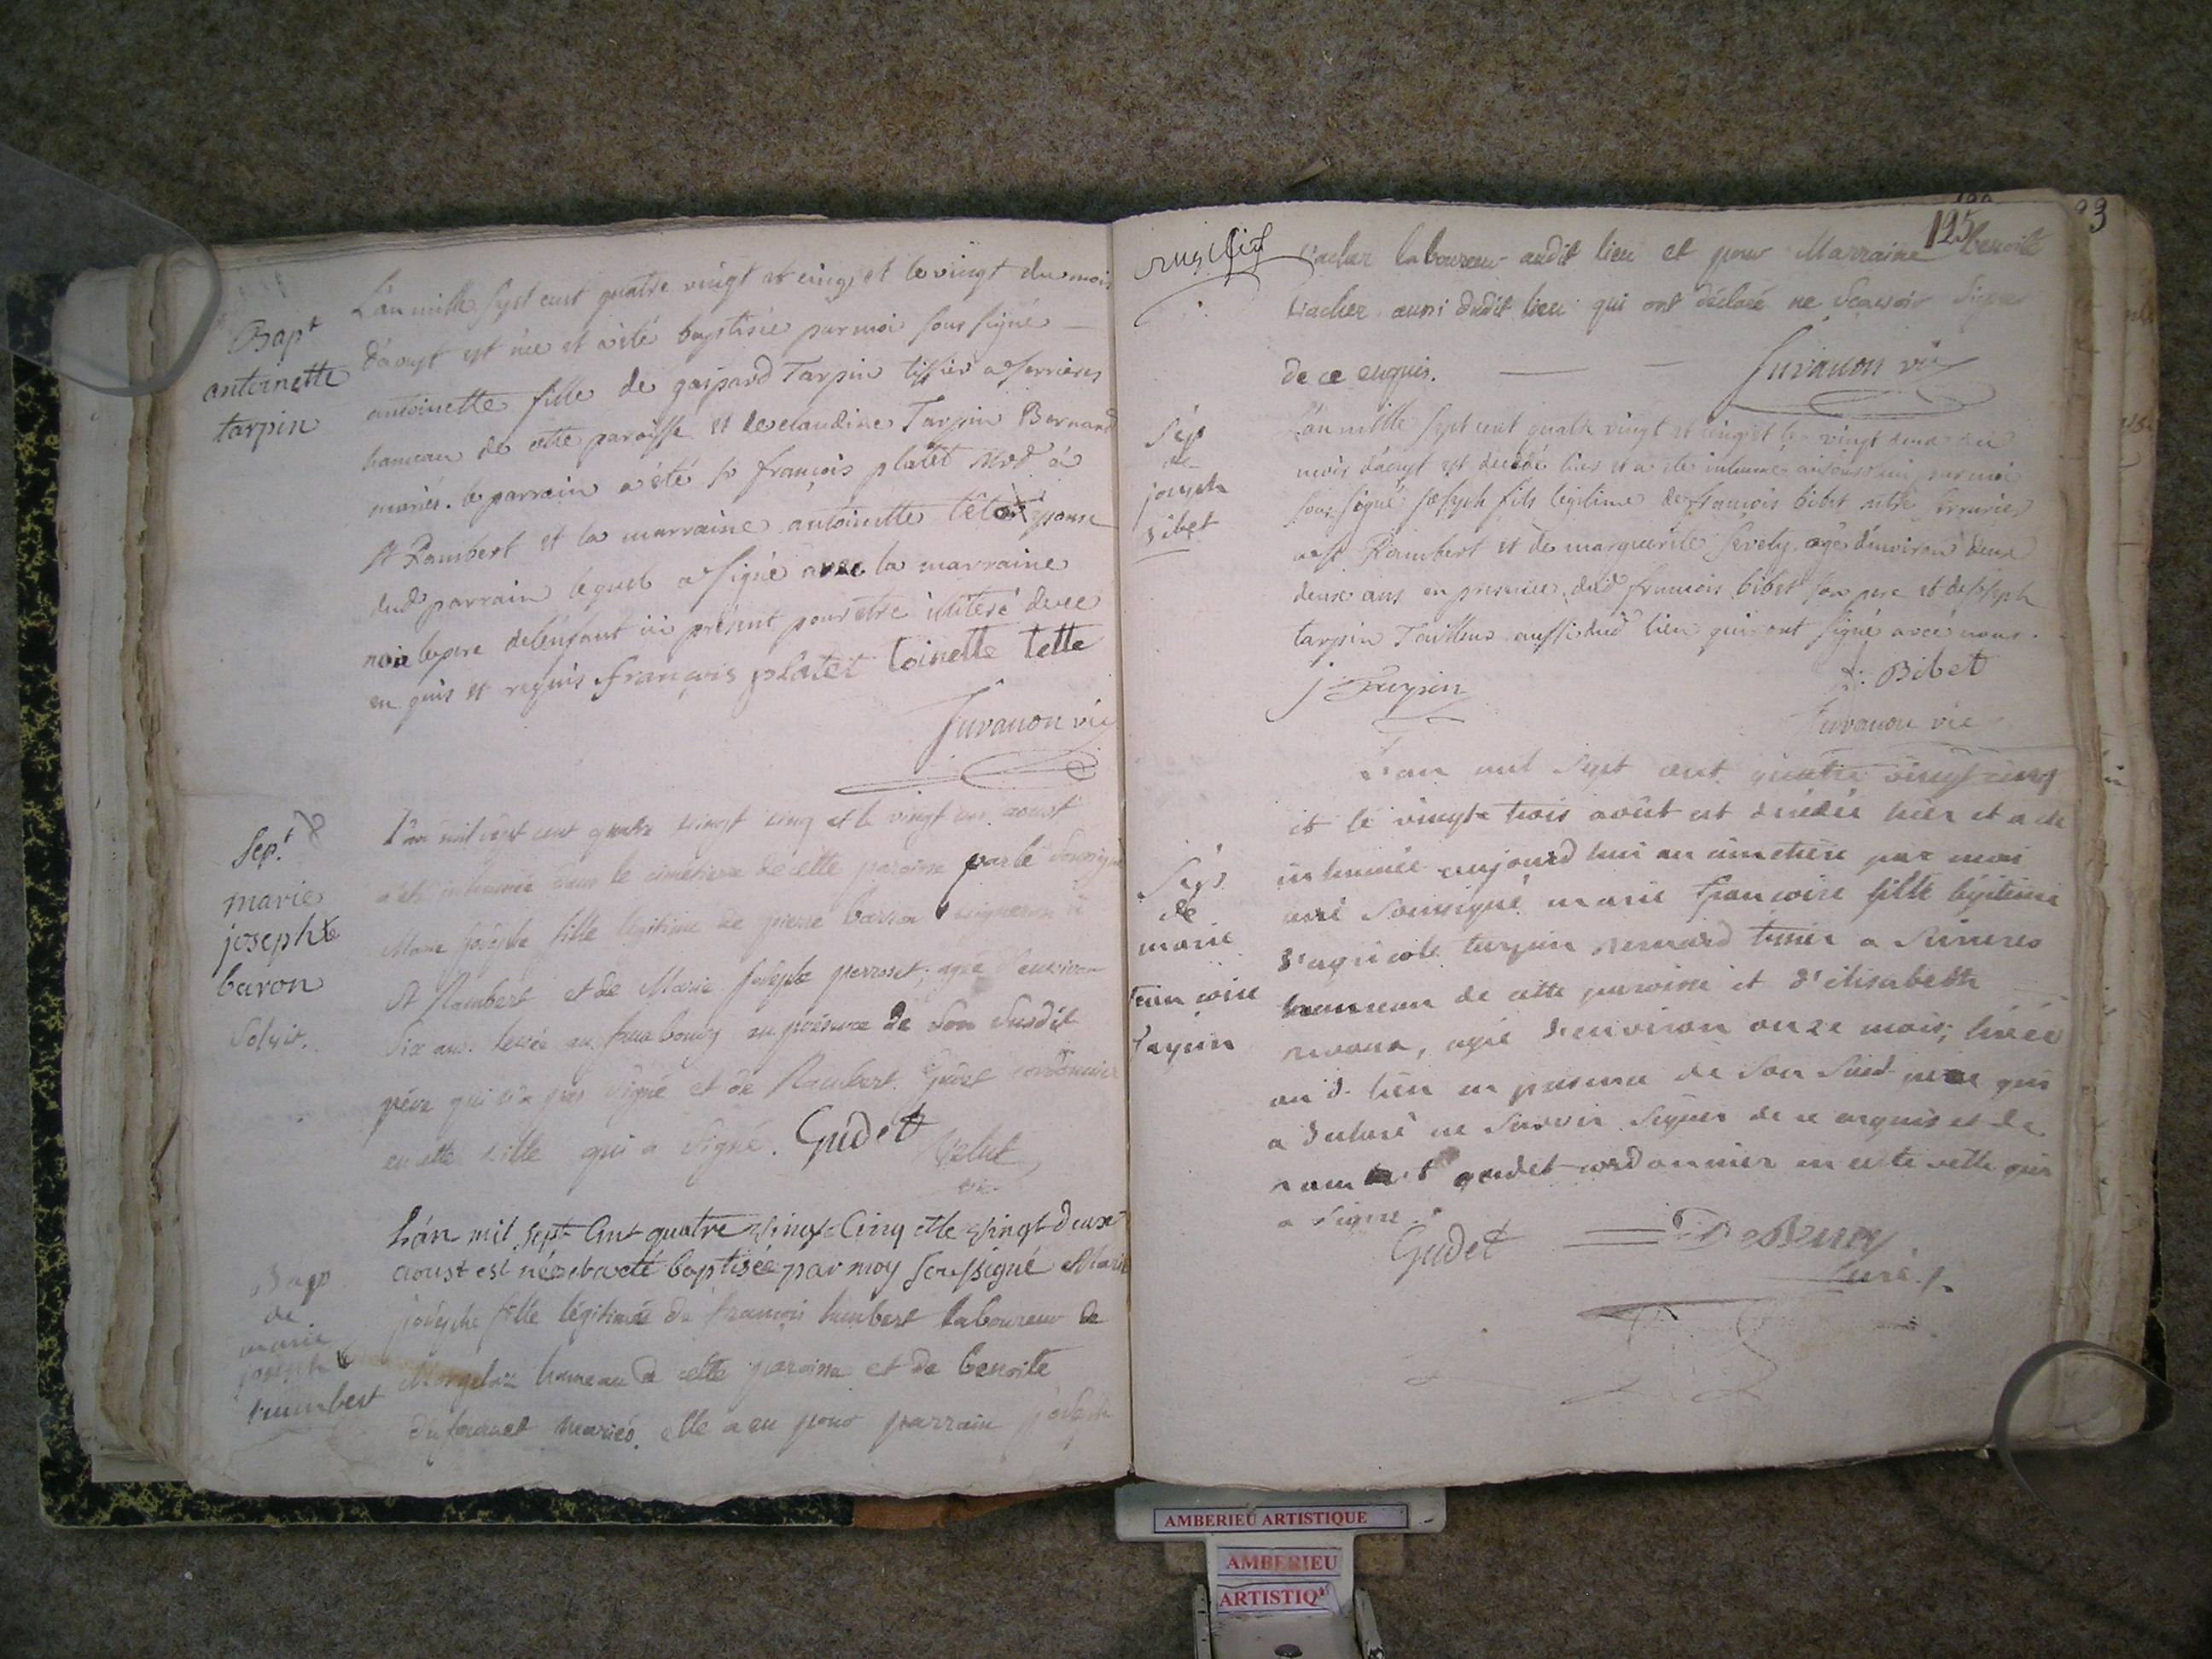 Bapt
antoinette
tarpin
L'an mille sept cent quatre vingt et cinq et le vingt du mois
d'aoust est née et a été baptisée par moi soussigné
antoinette fille de gaspard Tarpin tissier a serrieres
hameau de cette paroisse et de claudine Tarpin Bernard
mariés. le parrain a été sr françois platet md à
st Rambert et la marraine antoinette tête epouse
dud parrain lequel a signé avec la marraine
non le pere de l'enfant ici présent pour être illiteré de ce
en quis et requis françois platet toinette tette
Juvanon vic
Sept
marie
josephe
baron
Solvit.
L'an mil sept cent quatre vingt cinq et le vingt un aoust
a été inhumée dans le cimetiere de cette paroisse par le soussigné
Marie josephe fille légitime de pierre baron vigneron à
St Rambert et de Marie josephe perroset, agée d'environ
Six ans. levée au faux bourg en présence de Son Susdit
père qui n'a pas signé et de Rambert Gudet cordonnier
en cette ville qui a signé. Gudet
Velut
vic.
Bap
de
marie
josephe
humbert
L'an mil sept Cent quatre vingt Cinq et le vingt deux
aoust est née et a été baptisée par moy soussigné Marie
josephe fille légitime de françois humbert laboureur de
Morgelaz hameau de cette paroisse et de benoite
dufournet mariés. elle a eu pour parrain joseph
125
vacher laboureur audit lieu et pour Marraine benoite
vacher aussi dudit lieu qui ont déclaré ne Scavoir Signer
de ce enquis. Juvanon vic
Sep
de
joseph
bibet
L'an mille sept cent quatre vingt et cinq et le vingt deux du
mois d'aoust est decédé hier et a été inhumé aujourd'hui par moi
soussigné joseph fils legitime de françois bibet
a st Rambert et de marguerite sevely agé d'environ deux
deux ans en presence dud françois bibet son pere et de joseph
tarpin Tailleur aussi dud lieu qui ont signé avec nous.
j Tarpin
f: Bibet
Juvanon vic
Sep
de
marie
francoise
tarpin
L'an mil sept cent quatre vingt cinq
et le vingt trois août est décédée hier et a été
inhumée aujourd hui au cimetiere par moi
curé Soussigné marie francoise fille légitime
d'agricole tarpin bernard tissier a Serrieres
hameau de cette paroisse et d'élisabeth
revoux, agée d'environ onze mois, levée
au d. lieu en présence de Son Susd père qui
a déclaré ne Savoir Signer de ce enquis et de
rambert gudet cordonnier en cette ville qui
a Signé.
Gudet
Curé.
AMBERIEU ARTISTIQUE
AMBERIEU
ARTISTIQ